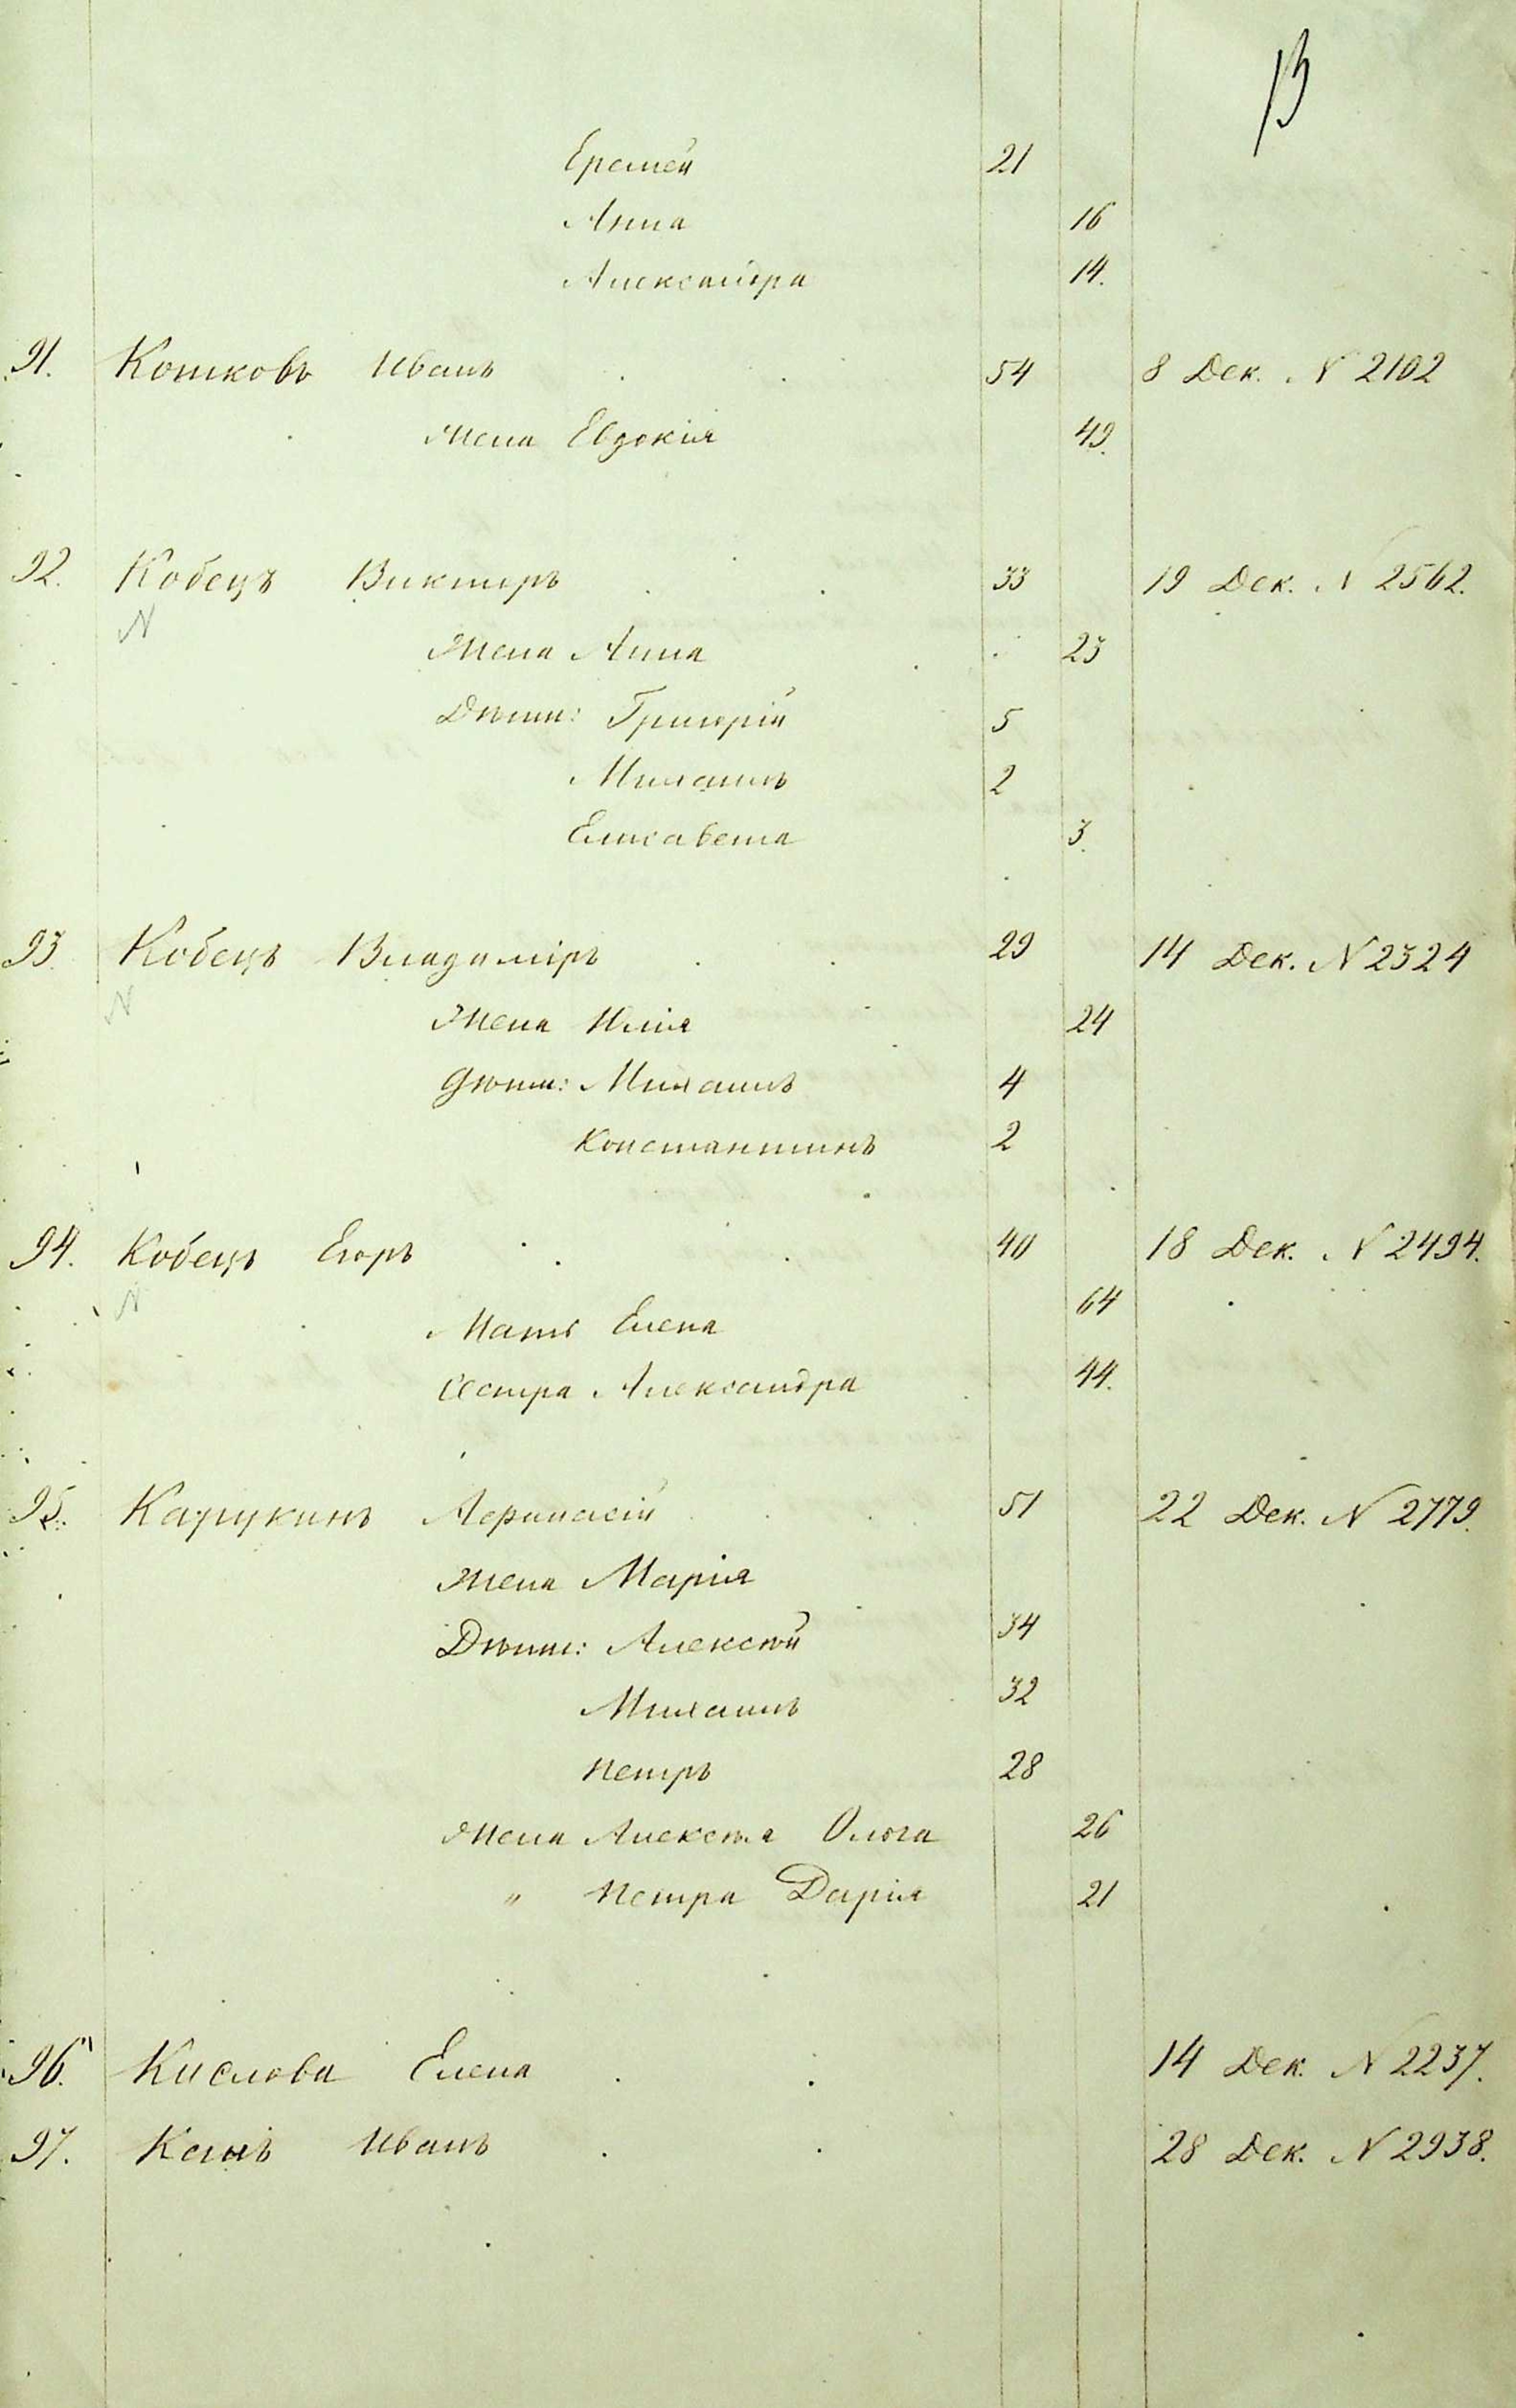 13
Еремей 21
Анна 16
Александра 14.
91. Кошковъ Иванъ . . 54 8 Дек. N 2102
жена Евдокія 49.
92. Кобецъ Викторъ . . 33 19 Дек. N 2562.
N
Жена Анна 23
Дѣти: Григорій 5
Михаилъ 2
Елисавета 3.
93. Кобецъ Владиміръ . . 29 14 Дек. N 2324
N
Жена Юлія 24
Дѣти: Михаилъ 4
Константинъ 2
94. Кобецъ Егоръ . . 40 18 Дек. N 2494.
N
Мать Елена 64
Сестра Александра 44.
95. Афанасій 51 22 Дек. N 2779.
Жена Марія
Дѣти: Алексѣй 34
Михаилъ 32
Петръ 28
Жена Алексѣя Ольга 26
" Петра Дарія 21
96. Кислова Елена . . 14 Дек. N 2237.
97. Иванъ . . 28 Дек. N 2938.